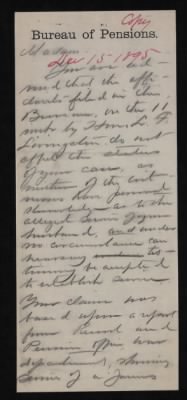 Copy
Bureau of Pensions.
Madam:
Dec 15-1895
You are ad-
vised that the affi-
davits filed in this
Bureau, on the 11
inst. by Hon. L. F.
Livingston do not
affect the status
of your case, as
neither of the
as to the
alleged service of your
husband, and under
no circumstances can
hearsay tes-
timony be accepted
to establish service
Your claim was
based upon a report
from Record and
Pension office, War
department, showing
service of a James